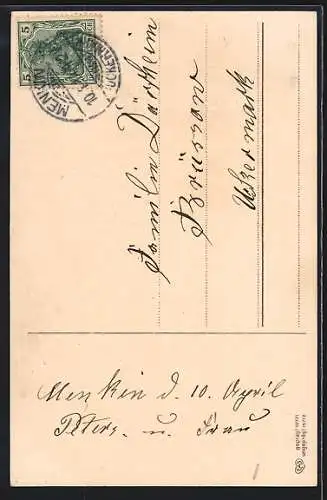 5
MENKIN
10.
Familie Dörthein
Brüssow
Uckermark
Menkin d. 10 April
Peters. u. Frau